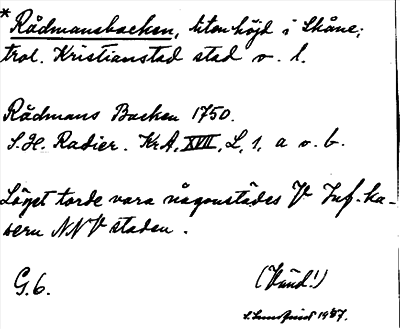 * Rådmansbacken, liten höjd i Skåne;
trol. Kristianstad stad o. l.
Rådmans Backen 1750.
S. H. Radier. KrA, XVII, L, 1, a o. b.
Läget torde vara någonstädes V Inf. ka-
sern NNV staden.
G. 6.
(Vänd!)
1987.